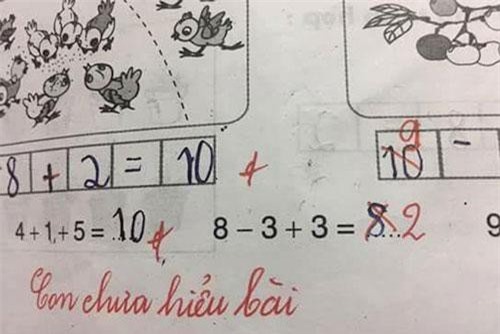 8 + 2 = 10 9 10 -
4 + 1 + 5 = 10 8 - 3 + 3 = 8 2 9
Con chưa hiểu bài